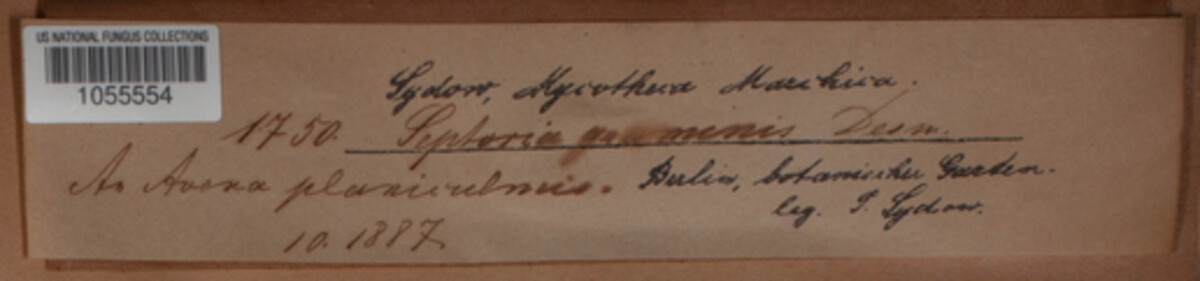 US NATIONAL FUNGUS COLLECTIONS
1055554
Sydow, Mycotheca Marchica.
1750. Septoria graminis Desm.
An Avena planiculmis. Berlin, botanischer Garten.
leg. P. Sydow.
10. 1887.